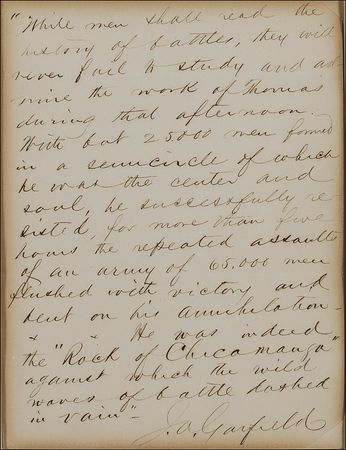 "While men shall read the
history of battles, they will
never fail to study and ad-
mire the work of Thomas
during that afternoon.
With but 25000 men formed
in a semicircle of which
he was the center and
soul, he successfully re
sisted, for more than five
hours the repeated assaults
of an army of 65,000 men
flushed with victory and
bent on his annihilation-
x x He was indeed
the "Rock of Chicamauga"
against which the wild
waves of battle dashed
in vain"-
J. A. Garfield